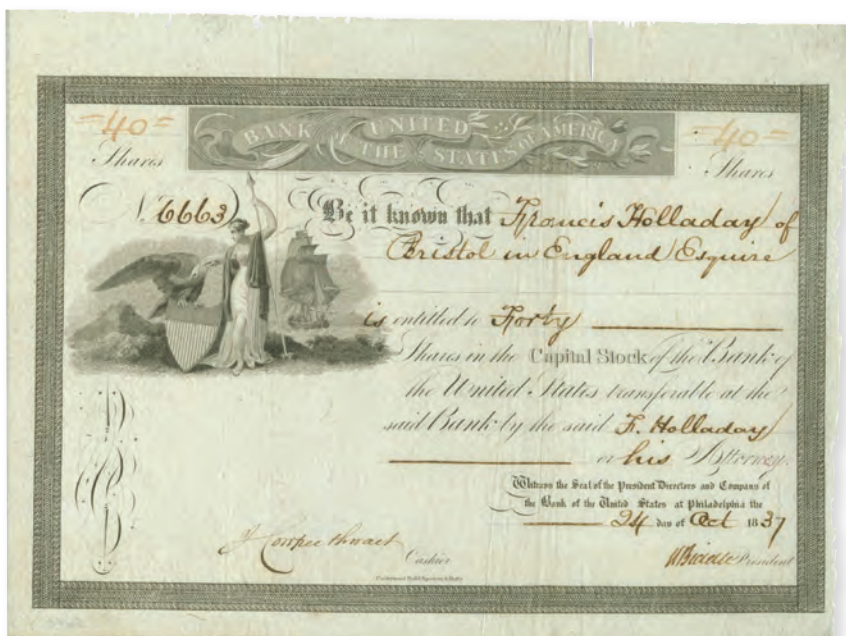 =40= =40=
BANK OF THE UNITED STATES OF AMERICA
Shares Shares
N. 6663 Be it known that Francis Holladay of
Bristol in England Esquire
is entitled to Forty
Shares in the Capital Stock of the Bank of
the United States transferable at the
said Bank by the said F. Holladay
or his Attorney.
Witness the Seal of the President Directors and Company of
the Bank of the United States at Philadelphia the
24 day of Oct 1837
J Cowperthwait Cashier N Biddle President